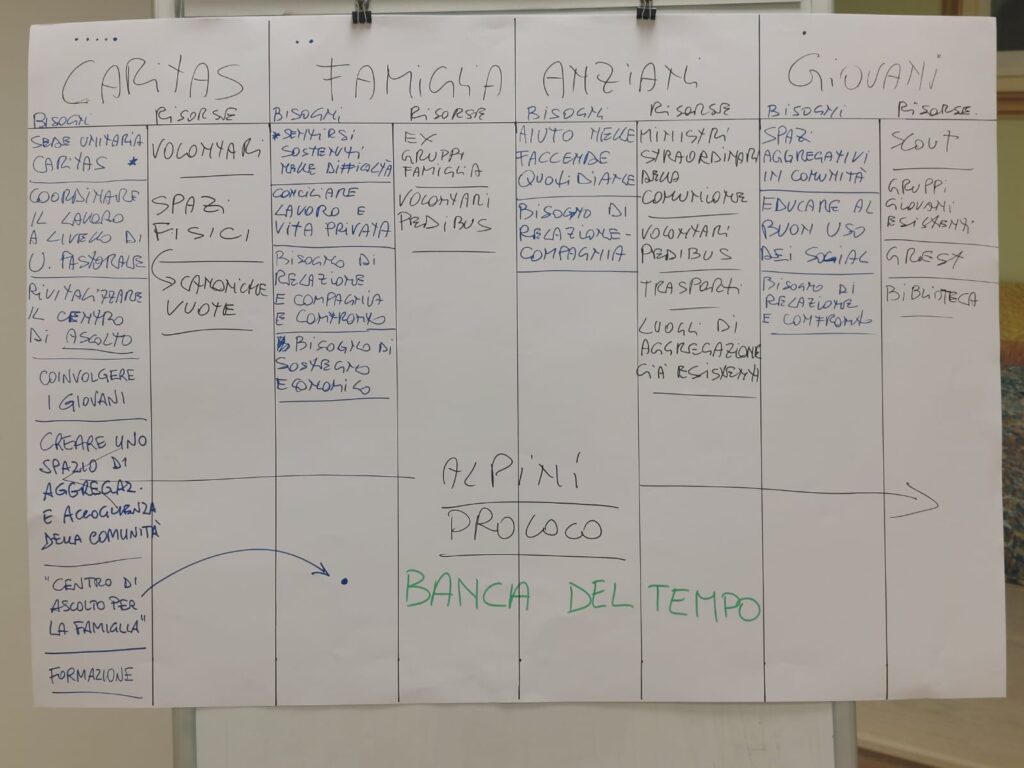 CARITAS
BISOGNI
SEDE UNITARIA
CARITAS *
COORDINARE
IL LAVORO
A LIVELLO DI
U. PASTORALE
RIVITALIZZARE
IL CENTRO
DI ASCOLTO
COINVOLGERE
I GIOVANI
CREARE UNO
SPAZIO DI
AGGREGAZ.
E ACCOGLIENZA
DELLA COMUNITÀ
"CENTRO DI
ASCOLTO PER
LA FAMIGLIA"
FORMAZIONE
RISORSE
VOLONTARI
SPAZI
FISICI
CANONICHE
VUOTE
FAMIGLIA
BISOGNI
*SENTIRSI
SOSTENUTI
NELLE DIFFICOLTÀ
CONCILIARE
LAVORO E
VITA PRIVATA
BISOGNO DI
RELAZIONE
E COMPAGNIA
E CONFRONTO
BISOGNO DI
SOSTEGNO
ECONOMICO
RISORSE
EX
GRUPPI
FAMIGLIA
VOLONTARI
PEDIBUS
ANZIANI
BISOGNI
AIUTO NELLE
FACCENDE
QUOTIDIANE
BISOGNO DI
RELAZIONE-
COMPAGNIA
RISORSE
MINISTRI
STRAORDINARI
DELLA
COMUNIONE
VOLONTARI
PEDIBUS
TRASPORTI
LUOGHI DI
AGGREGAZIONE
GIÀ ESISTENTI
GIOVANI
BISOGNI
SPAZI
AGGREGATIVI
IN COMUNITÀ
EDUCARE AL
BUON USO
DEI SOCIAL
BISOGNO DI
RELAZIONE
E CONFRONTO
RISORSE
SCOUT
GRUPPI
GIOVANI
ESISTENTI
GREST
BIBLIOTECA
ALPINI
PROLOCO
BANCA DEL TEMPO